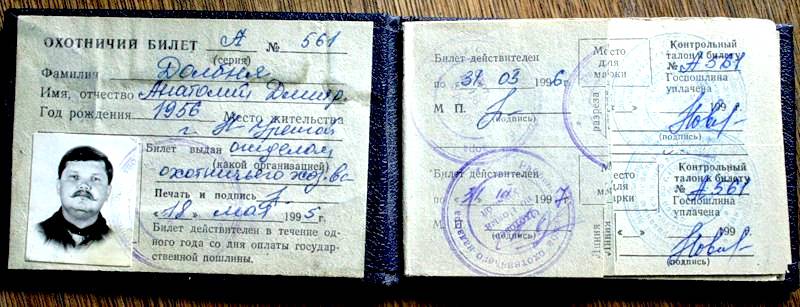 ОХОТНИЧИЙ БИЛЕТ А № 561
(серия)
Фамилия Дольня
Имя, отчество Анатолий Дмитр.
Год рождения 1956 Место жительства
г.
Билет выдан отделом
(какой организацией)
охотничьего хоз-ва
Печать и подпись
"18" мая 1995 г.
Билет действителен в течение од-
ного года со дня оплаты государ-
ственной пошлины.
Билет действителен
по "31" 03 1996 г.
М П.
(подпись)
Место
для
марки
разреза
Контрольный
талон к билету
№ А 561
Госпошлина
уплачена
" " 199 г.
(подпись)
Билет действителен
1997 г.
М
(подпись)
Линия
Контрольный
талон к билету
№ А 561
Госпошлина
уплачена
" " 199 г.
(подпись)